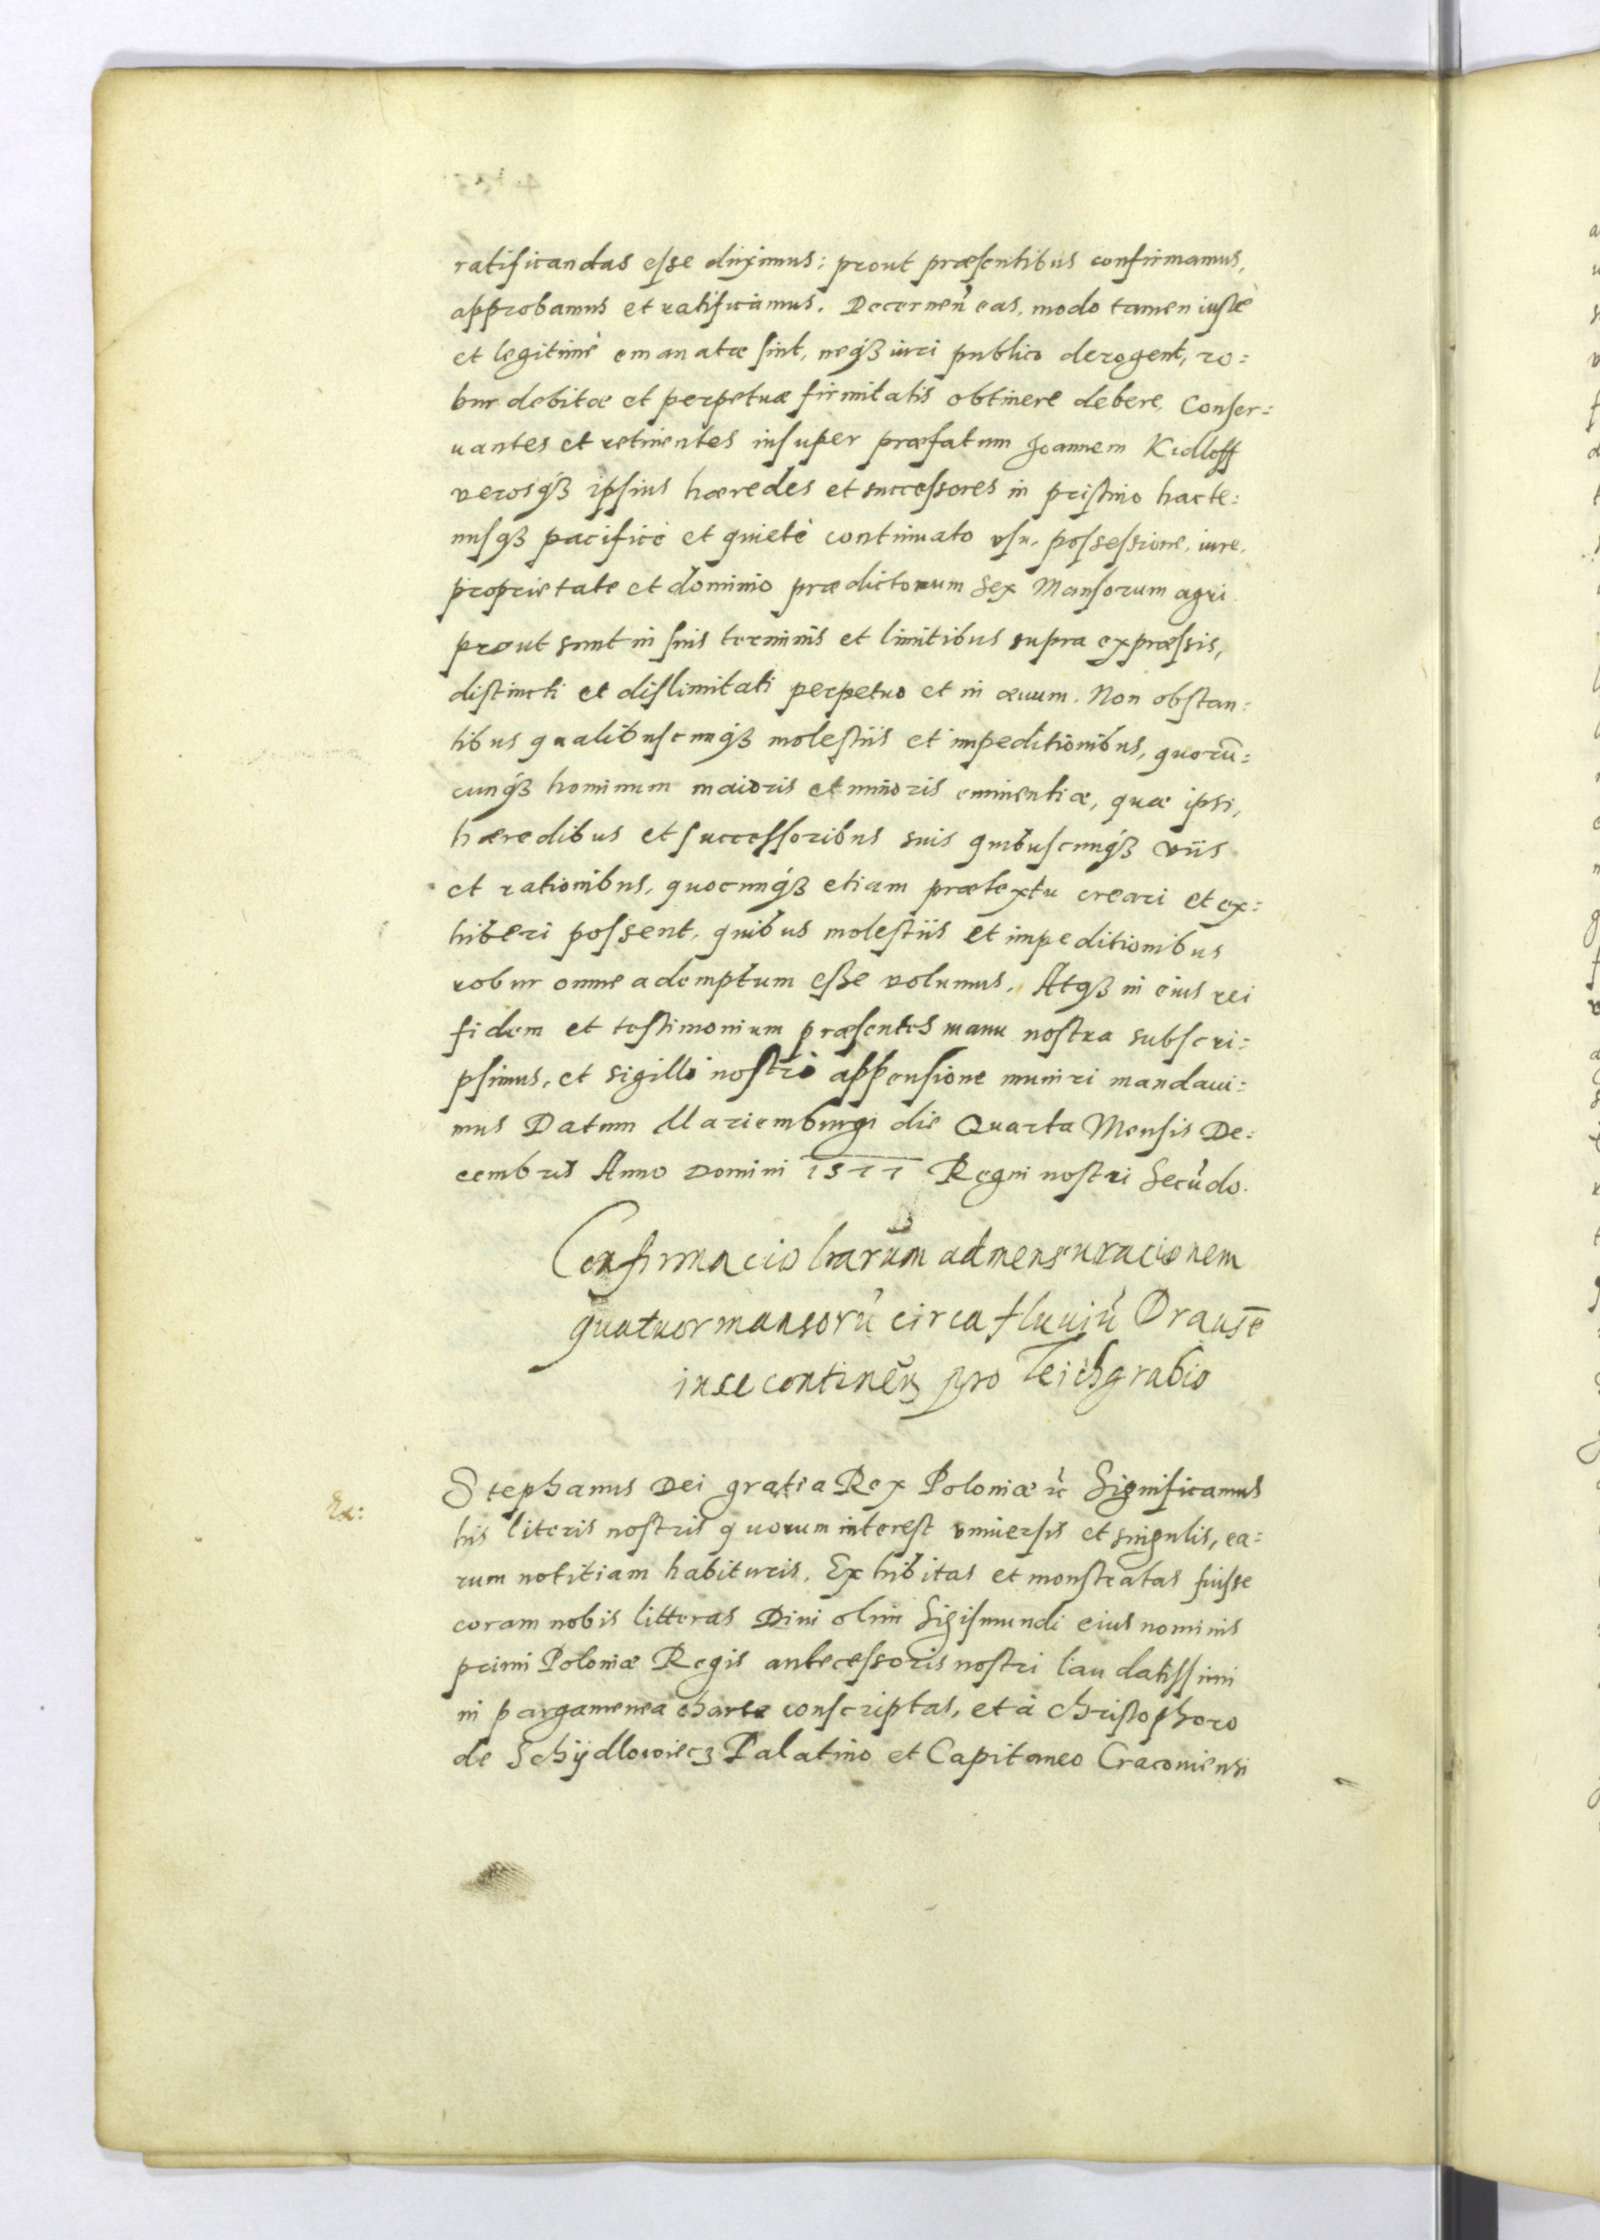 ratificandas eſse duximus: prout præſentibus confirmamus,
approbamus et ratificamus. Decernen̄ eas, modo tamen iustæ
et legitimè emanatæ ſint, neqꝫ iuri publico derogent, ro:
bur debitæ et perpetuæ firmitatis obtinere debere, Conſer:
uantes et retinentes inſuper præfatum Joannem Kidloff
verosqꝫ ipſius hæredes et succeſsores in priſtino hacte:
nuſqꝫ pacificè et quietè continuato vſu, poſseſsione, iure,
proprietate et dominio prædictorum Sex Manſorum agri
prout sunt in ſuis terminis et limitibus supra expræſsis,
distincti et diſlimitati perpetuo et in æuum. Non obſtan:
tibus qualibuſcunqꝫ molestiis et impeditionibus, quorū:
cunqꝫ hominum maioris et minoris eminentiæ, quæ ipsi,
hæredibus et ſucceſſoribus suis quibuſcunqꝫ viis
et rationibus, quocunqꝫ etiam prætextu creari et ex:
hiberi poſsent, quibus molestiis et impeditionibus
robur omne ademptum eſse volumus. Atqꝫ in eius rei
fidem et testimonium præſentes manu nostra subſcri:
pſimus, et sigilli nostri appenſione muniri mandaui:
mus Datum Mariemburgi die Quarta Mensis De:
cembris Anno Domini 1577 Regni nostri Secūdo.
Confirmacio lrarum admensuracionem
quatuor mansorū circa fluuiū Drausē
in se contineñ pro Teichgrabio
Stephanus Dei gratia Rex Poloniæ ꝛc Significamus
his literis nostris quorum interest vniuersis et singulis, ea:
rum notitiam habituris. Exhibitas et monstratas fuiſse
coram nobis litteras Diui olim Sigiſmundi eius nominis
primi Poloniæ Regis anteceſsoris nostri laudatiſſimi
in pargamenea charta conſcriptas, et à Christophoro
de Schÿdlowiecz Palatino et Capitaneo Cracouiensi